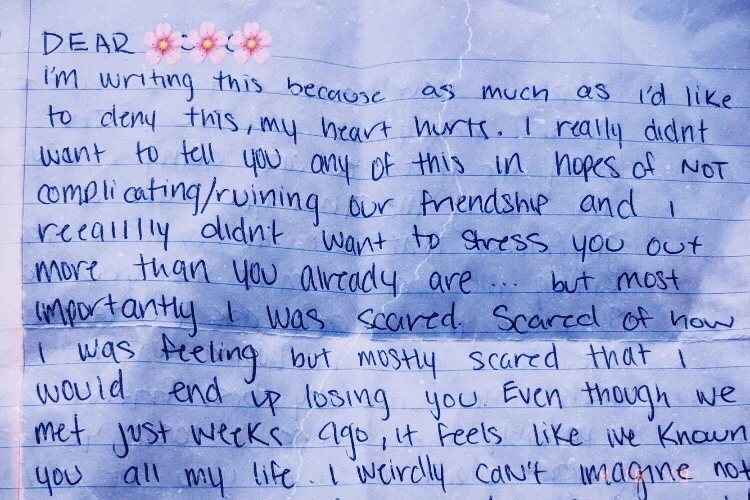 DEAR
I'm writing this because as much as I'd like
to deny this, my heart hurts. I really didnt
want to tell you any of this in hopes of NOT
complicating/ruining our friendship and I
reealllly didnt want to stress you out
more than you already are ... but most
importantly I was scared. Scared of how
I was feeling but mostly scared that I
would end up losing you. Even though we
met just weeks ago, it feels like ive known
you all my life. I weirdly can't imagine not